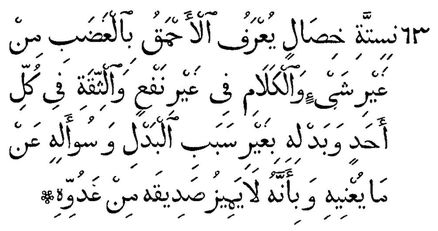 ٦٣ نِسِتَّةِ خِصَالٍ يُعْرَفُ ٱلْأَحْمَقُ بِٱلْغَضَبِ مِنْ
غَيْرِ شَىْءٍ وَٱلْكَلَامِ فِى غَيْرِ نَفْعٍ وَٱلثِّقَةِ فِى كُلِّ
أَحَدٍ وَبَدْلِهِ بِغَيْرِ سَبَبِ ٱلْبَدْلِ وَسُوأَلِهِ عَنْ
مَا يُعْنِيهِ وَبِأَنَّهُ لَا يَمِيزُ صَدِيقَه مِنْ عَدُوِّهِ ❊